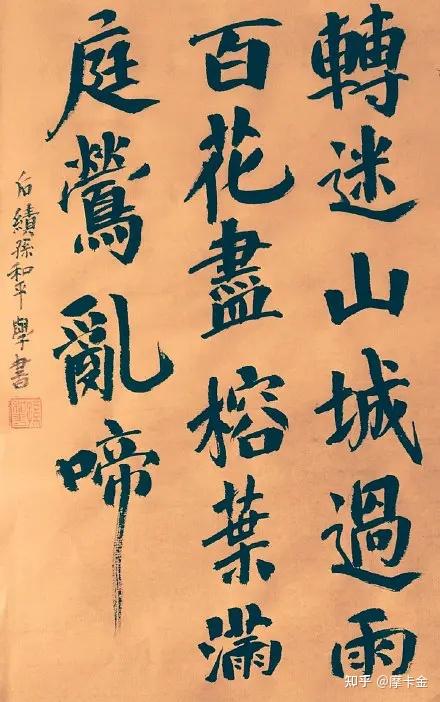 轉迷山城過雨
百花盡榕葉滿
庭鶯亂啼
后績孫和平學書
知乎 @摩卡金